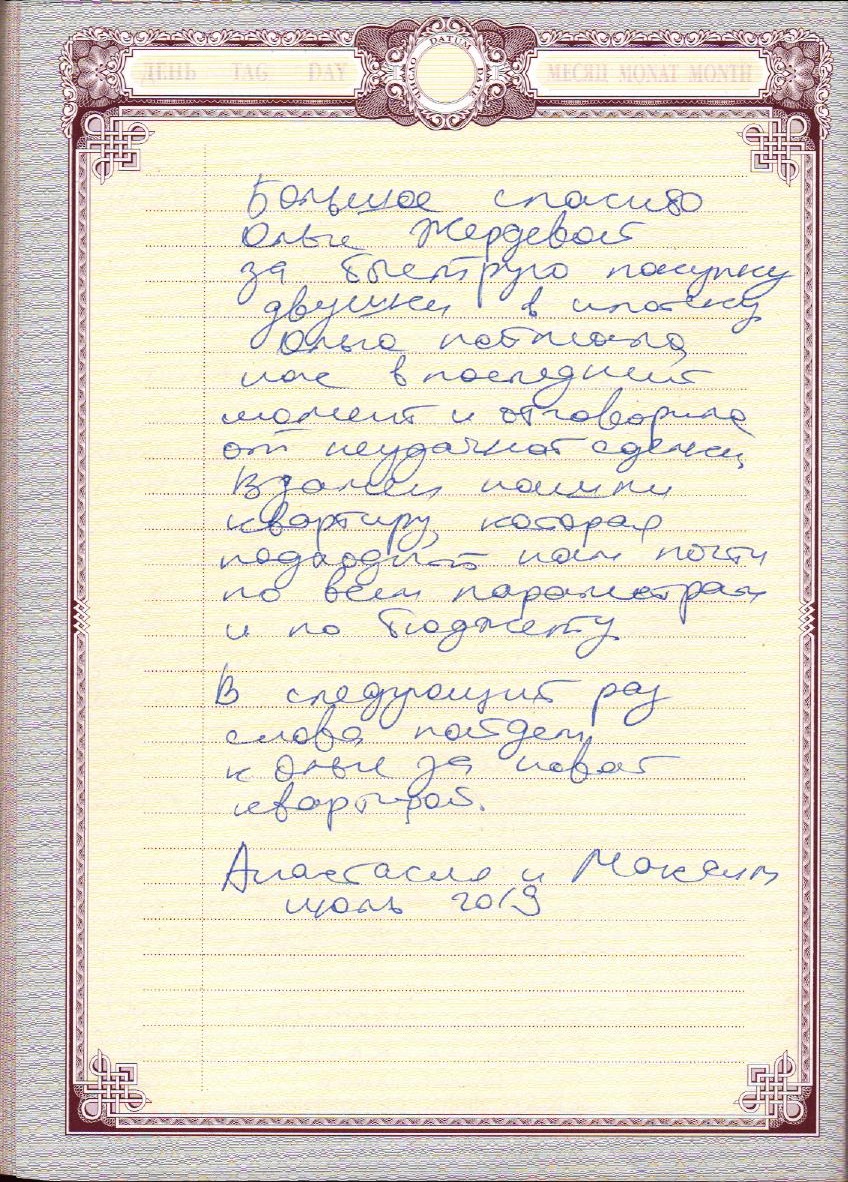 ДЕНЬ TAG DAY
ЧИСЛО DATUM DATE
МЕСЯЦ MONAT MONTH
Большое спасибо
Ольге Жердевой
за быструю покупку
двушки в ипотеку
Ольга поймала
нас в последний
момент и отговорила
от неудачной сделки
Взамен нашли
квартиру, которая
подходит нам почти
по всем параметрам
и по бюджету
В следующий раз
снова пойдем
к Ольге за новой
квартирой.
Анастасия и Максим
июль 2019